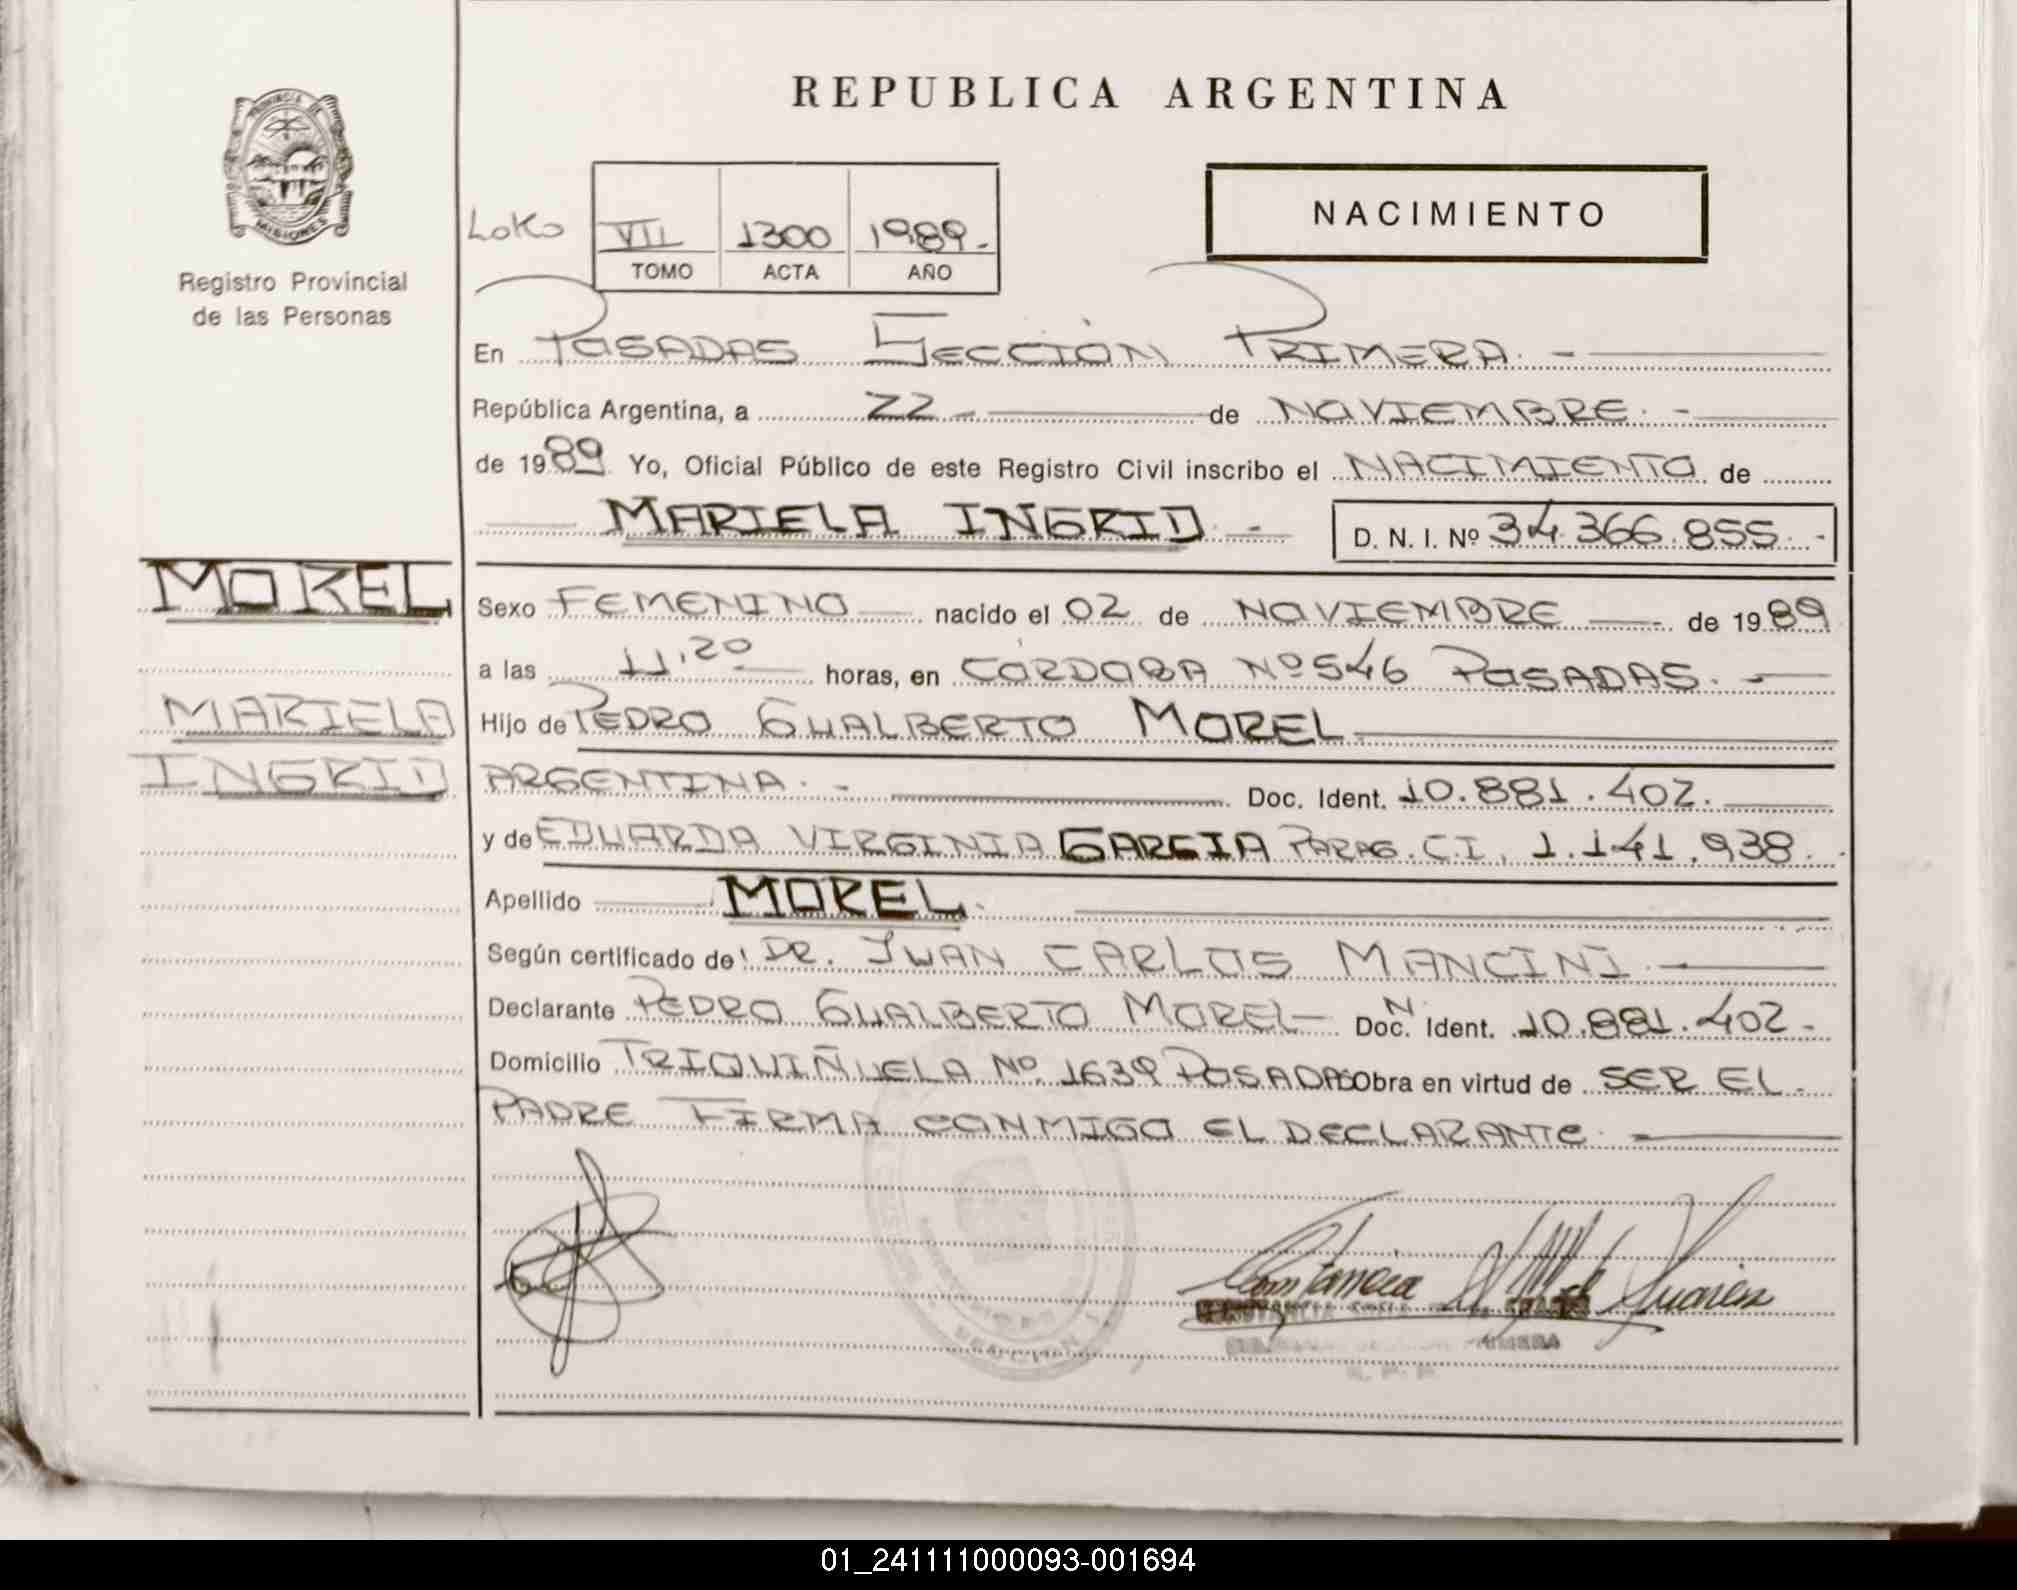 REPUBLICA ARGENTINA
PROVINCIA DE
MISIONES
Registro Provincial
de las Personas
NACIMIENTO
LoKo VII 1300 1989.-
TOMO ACTA AÑO
En POSADAS SECCION PRIMERA. -
República Argentina, a 22 - de NOVIEMBRE. -
de 1989 Yo, Oficial Público de este Registro Civil inscribo el NACIMIENTO de
MARIELA INGRID. - D. N. I. Nº 34.366.855. -
MOREL
MARIELA
INGRID
Sexo FEMENINO nacido el 02 de NOVIEMBRE de 1989
a las 11.20 horas, en CORDOBA Nº 546 POSADAS. -
Hijo de PEDRO GUALBERTO MOREL
ARGENTINA. - Doc. Ident. 10.881.402.
y de EDUARDA VIRGINIA GARCIA PARAG. CI. 1.141.938.
Apellido MOREL.
Según certificado de: DR. JUAN CARLOS MANCINI
Declarante PEDRO GUALBERTO MOREL Doc. N. Ident. 10.881.402-
Domicilio TRIQUIÑUELA Nº 1639 POSADAS Obra en virtud de SER EL
PADRE FIRMA CONMIGO EL DECLARANTE. -
SECCION 1
Constancia Suarez
01_241111000093-001694